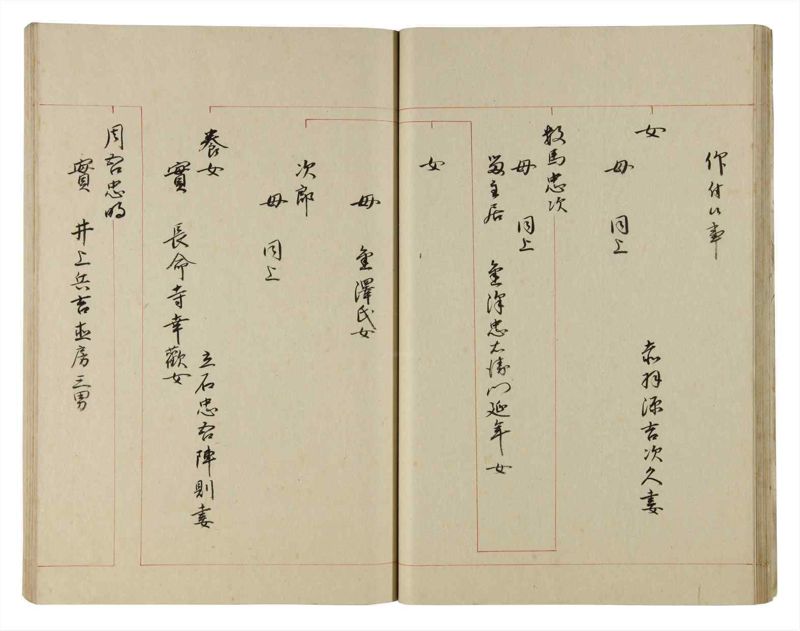 作付候事
女
母 同上
赤羽源吉次久妻
数馬忠次
母 同上
室 金澤忠右衛門延年女
女
母 金澤氏女
次郎
母 同上
養女
實 長命寺幸歡女
立石忠右陣則妻
周右忠明
實 井上兵吉直房三男